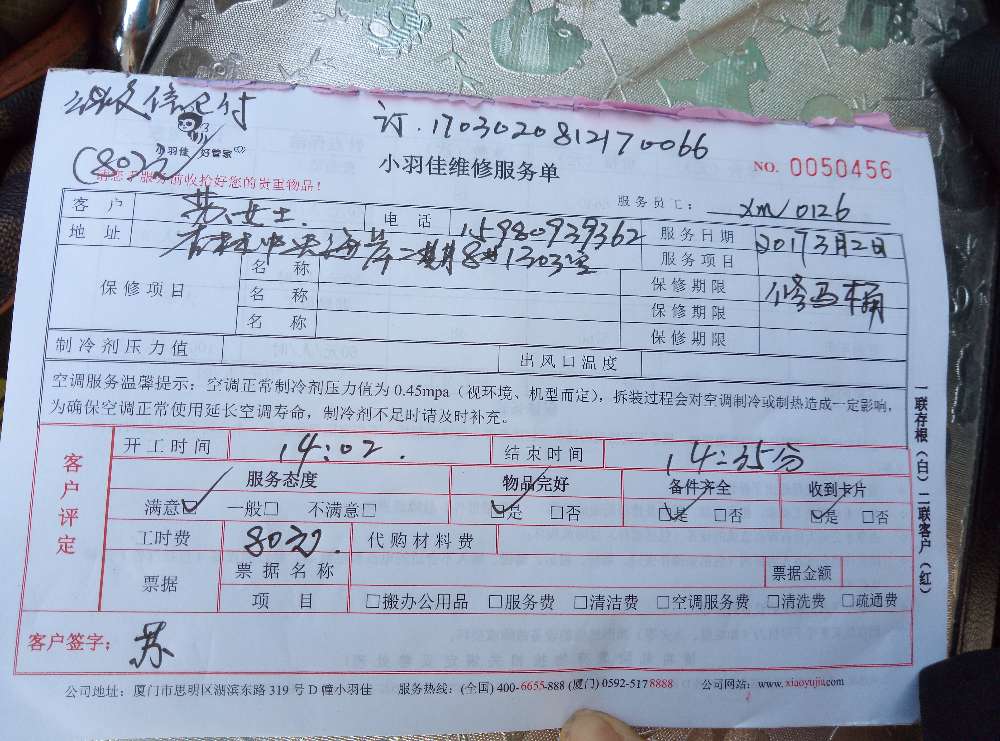 微信已付
订.1703020812170066
小羽佳 好管家
(80元)
小羽佳维修服务单
NO. 0050456
请您于服务前收拾好您的贵重物品！
服务员工： xm/0126
客户 苏女士 电话 15980939362 服务日期 2017 3月2日
地址 杏林中央海岸二期8#1303室 服务项目 修马桶
保修项目 名称 保修期限
名称 保修期限
名称 保修期限
制冷剂压力值 出风口温度
空调服务温馨提示：空调正常制冷剂压力值为 0.45mpa（视环境、机型而定），拆装过程会对空调制冷或制热造成一定影响，
为确保空调正常使用延长空调寿命，制冷剂不足时请及时补充。
客户评定
开工时间 14:02. 结束时间 14:35分
服务态度 物品完好 备件齐全 收到卡片
满意☑ 一般□ 不满意□ ☑是 □否 ☑是 □否 ☑是 □否
工时费 80元. 代购材料费
票据 票据名称 票据金额
项目 □搬办公用品 □服务费 □清洁费 □空调服务费 □清洗费 □疏通费
客户签字： 苏
公司地址：厦门市思明区湖滨东路 319 号 D 幢小羽佳 服务热线：(全国) 400-6655-888 (厦门) 0592-5178888 公司网站：www.xiaoyujia.com
一联存根（白）二联客户（红）